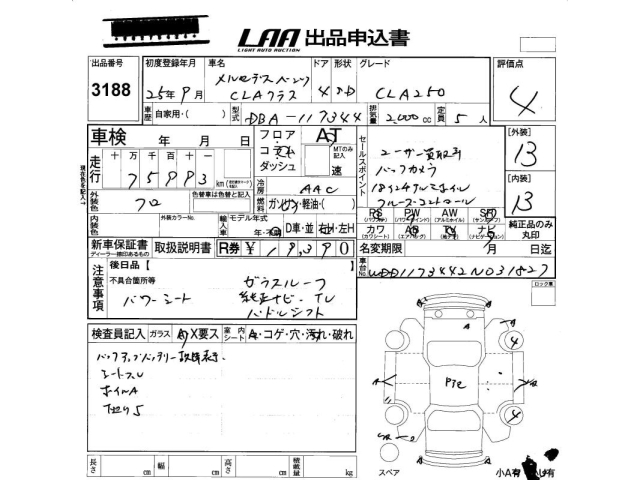 LAA 出品申込書
LIGHT AUTO AUCTION
出品番号
3188
初度登録年月
25年9月
車名
メルセデスベンツ
CLAクラス
ドア
4
形状
SD
グレード
CLA250
評価点
4
車歴
自家用・( )
型式
DBA-117344
排気量
2,000 cc
定員
5 人
車検 年 月 日
フロア・コラム・ダッシュ
AT
MTのみ記入
速
セールスポイント
ユーザー買取車
バックカメラ
18インチアルミホイル
クルーズコントロール
[外装]
13
[内装]
13
走行
十万千百十一
75993 km
現在色を記入→
冷房
AAC
外装色
色替車は色替と記入
クロ
燃料
ガソリン・軽油・( )
内装色
外装カラーNo.
輸入車
モデル年式
年・不明
D車・並
右H・左H
PS
(パワステ)
PW
(パワーウインド)
AW
(アルミホイル)
SR
(サンルーフ)
カワ
(カワシート)
AB
(エアバッグ)
TV
ナビ
(ナビゲーション)
純正品のみ丸印
新車保証書
ディーラー捺印のあるもの
取扱説明書
R券 ¥ 19,390
名変期限 月 日迄
車台No.
WDD1173442N031827
ロック車
注意事項
後日品 【 】
不具合箇所等
パワーシート
ガラスルーフ
純正ナビ・TV
パドルシフト
検査員記入
ガラス
A)X要ス
室内シート
A・コゲ・穴・汚れ・破れ
バックアップバッテリー故障表示
シートスレ
ホイルA
下廻りS
長さ cm
幅 cm
高さ cm
積載量 kg
スペア
小A有
小U有
A
4
4